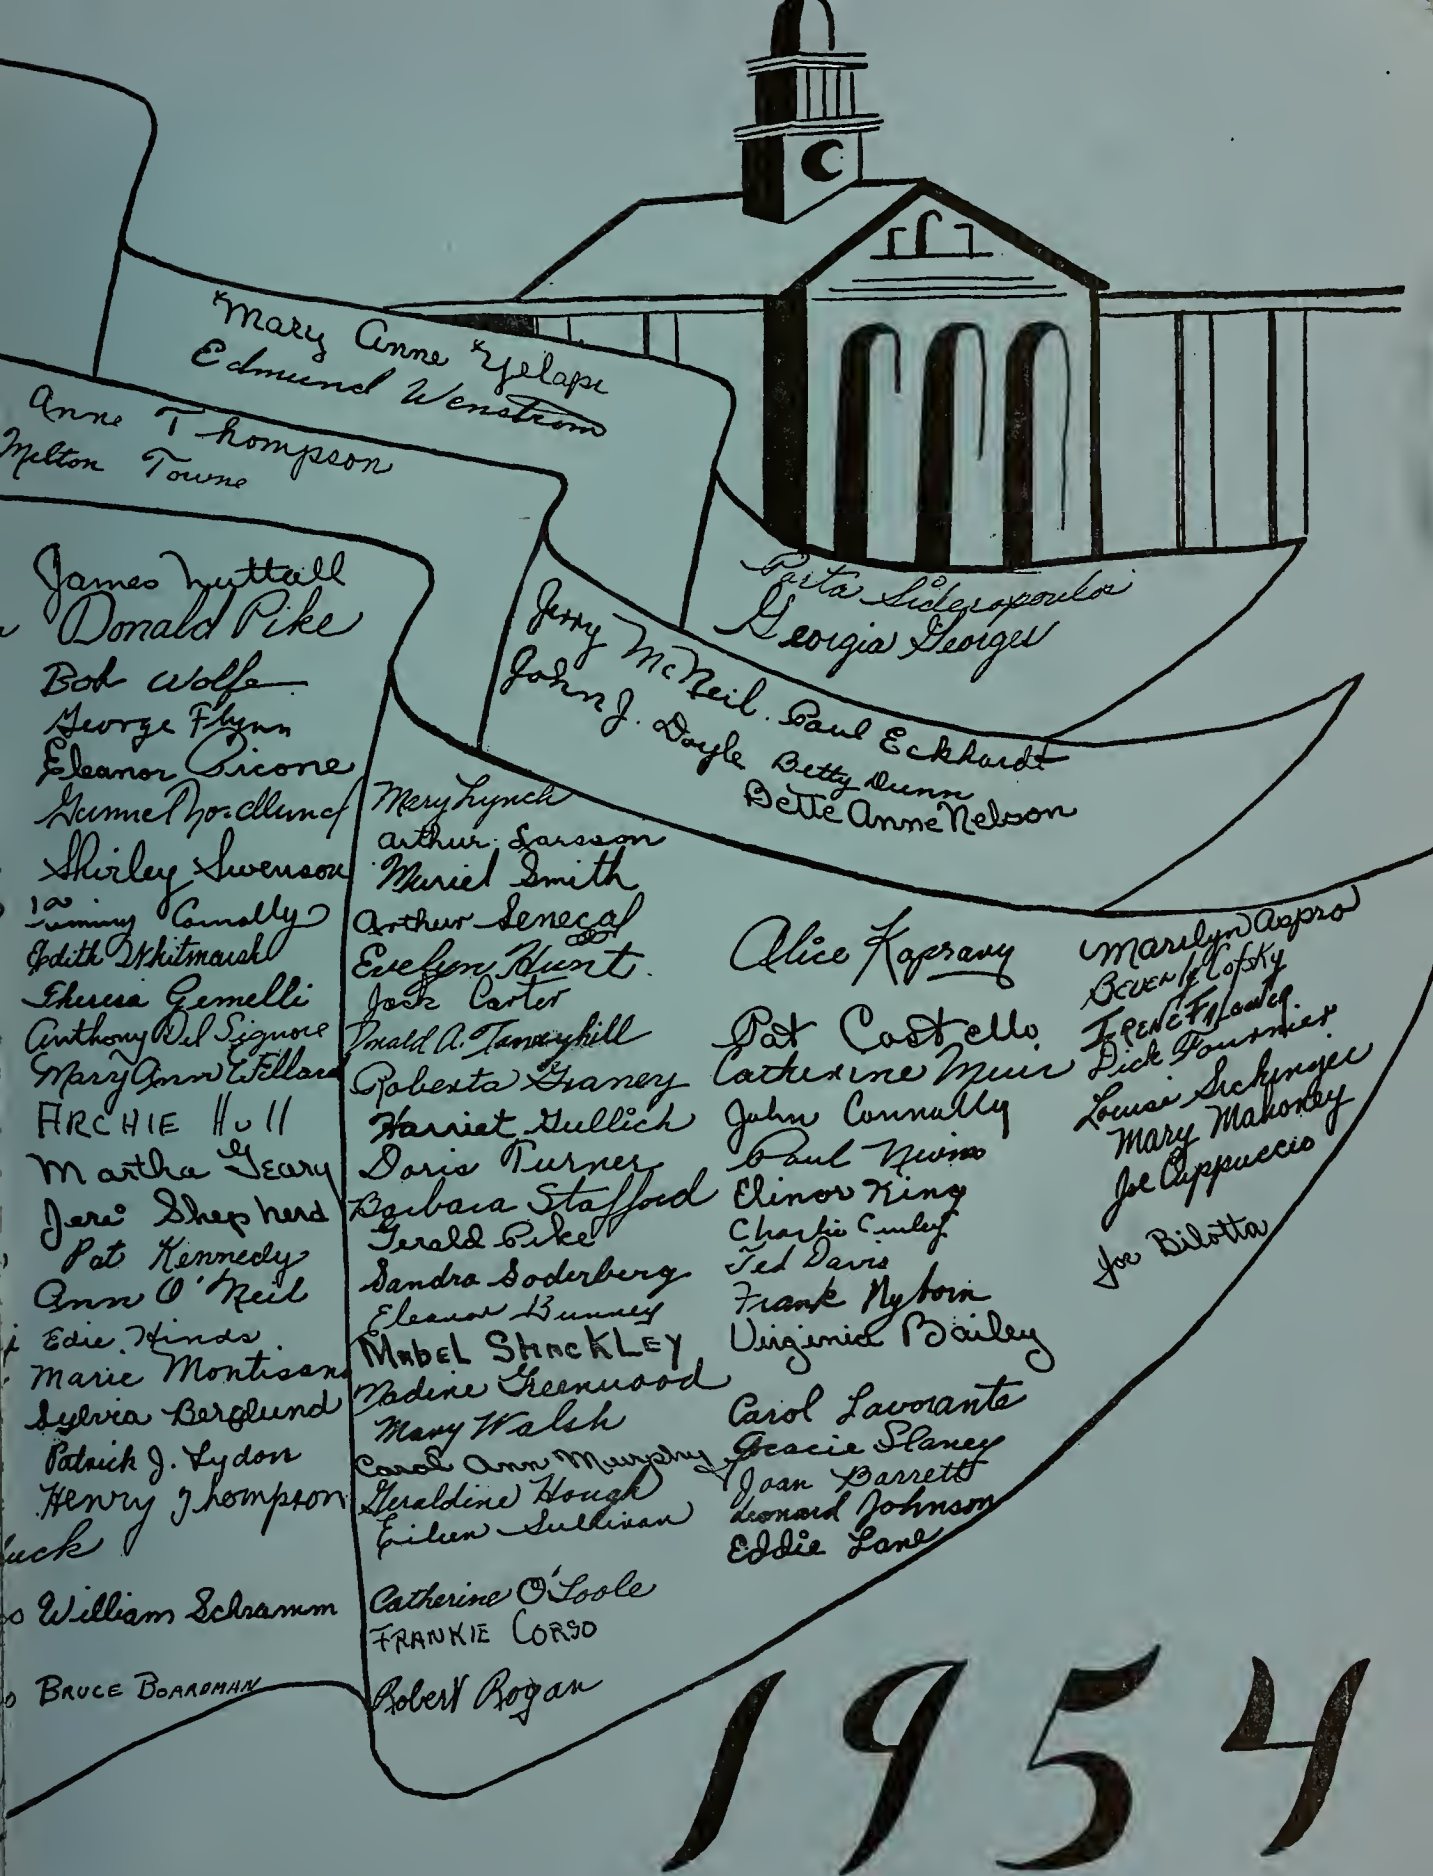 C
Mary Anne Yelapi
Edmund Wenstrom
Anne Thompson
Milton Towne
Sideropoulos
Georgia Georges
Jerry McNeil. Paul Eckhardt
John J. Doyle Betty Dunn
Bette Anne Nelson
James Nuttall
Donald Pike
Bob Wolfe
George Flynn
Eleanor Picone
Gunnel Nordlund
Shirley Swenson
Connolly
Edith Whitmarsh
Theresa Gemelli
Anthony Del Signore
Mary Ann Willard
ARCHIE Hull
Martha Geary
Jeri Shepherd
Pat Kennedy
Ann O'Neil
Edie Hinds
Marie Montisano
Sylvia Berglund
Patrick J. Lydon
Henry Thompson
uck
William Schramm
BRUCE BOARDMAN
Mary Lynch
Arthur Larsson
Muriel Smith
Arthur Senecal
Evelyn Hunt.
Jack Carter
Donald A. Tanneyhill
Roberta Graney
Harriet Gullich
Doris Turner
Barbara Stafford
Gerald Pike
Sandra Soderberg
Eleanor Bunney
MABEL SHACKLEY
Nadine Greenwood
Mary Walsh
Carol Ann Murphy
Geraldine Hough
Eileen Sullivan
Catherine O'Toole
FRANKIE CORSO
Robert Rogan
Alice Kapsavy
Pat Costello
Catherine Muir
John Connolly
Paul Nevins
Elinor King
Charlie Curley
Ted Davis
Frank Nyboin
Virginia Bailey
Carol Lavorante
Gracie Slaney
Joan Barrett
Leonard Johnson
Eddie Lane
Marilyn Aspro
Beverly Cofsky
IRENE
Dick Fournier
Louise Sickinger
Mary Mahoney
Joe Cappuccio
Joe Bilotta
1954